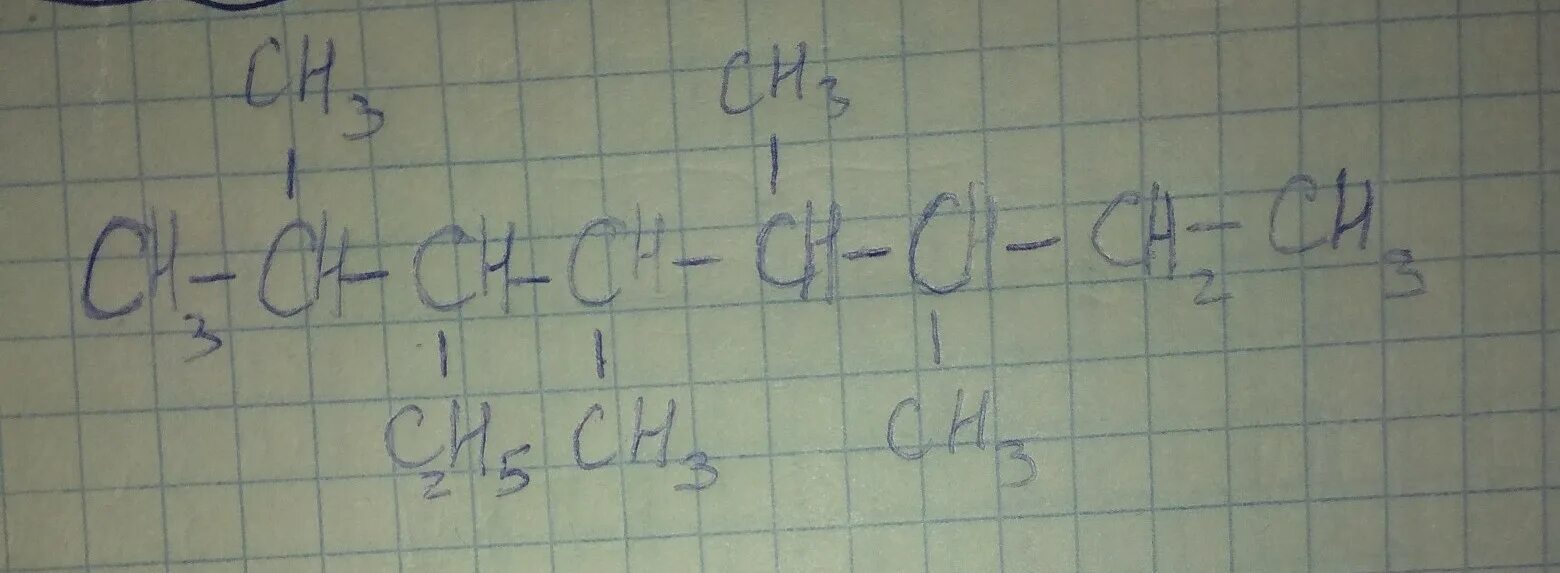 CH3 CH3
CH3-CH-CH-CH-CH-CH-CH2-CH3
C2H5 CH3 CH3